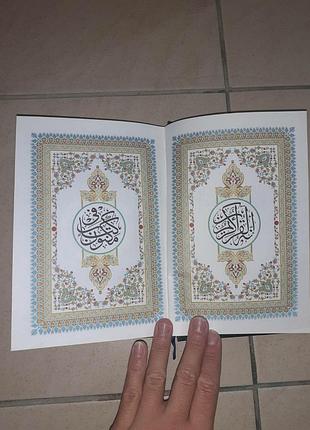 القرآن الكريم
في كتاب مكنون